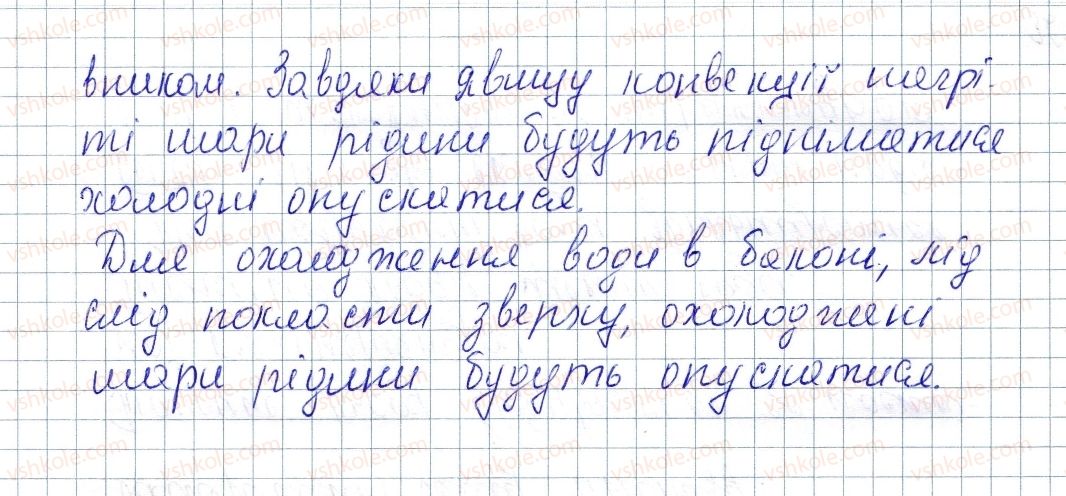 вником. Завдяки явищу конвекції нагрі-
ті шари рідини будуть підніматися
холодні опускатися.
Для охолодження води в балоні, лід
слід покласти зверху, охолоджені
шари рідини будуть опускатися.